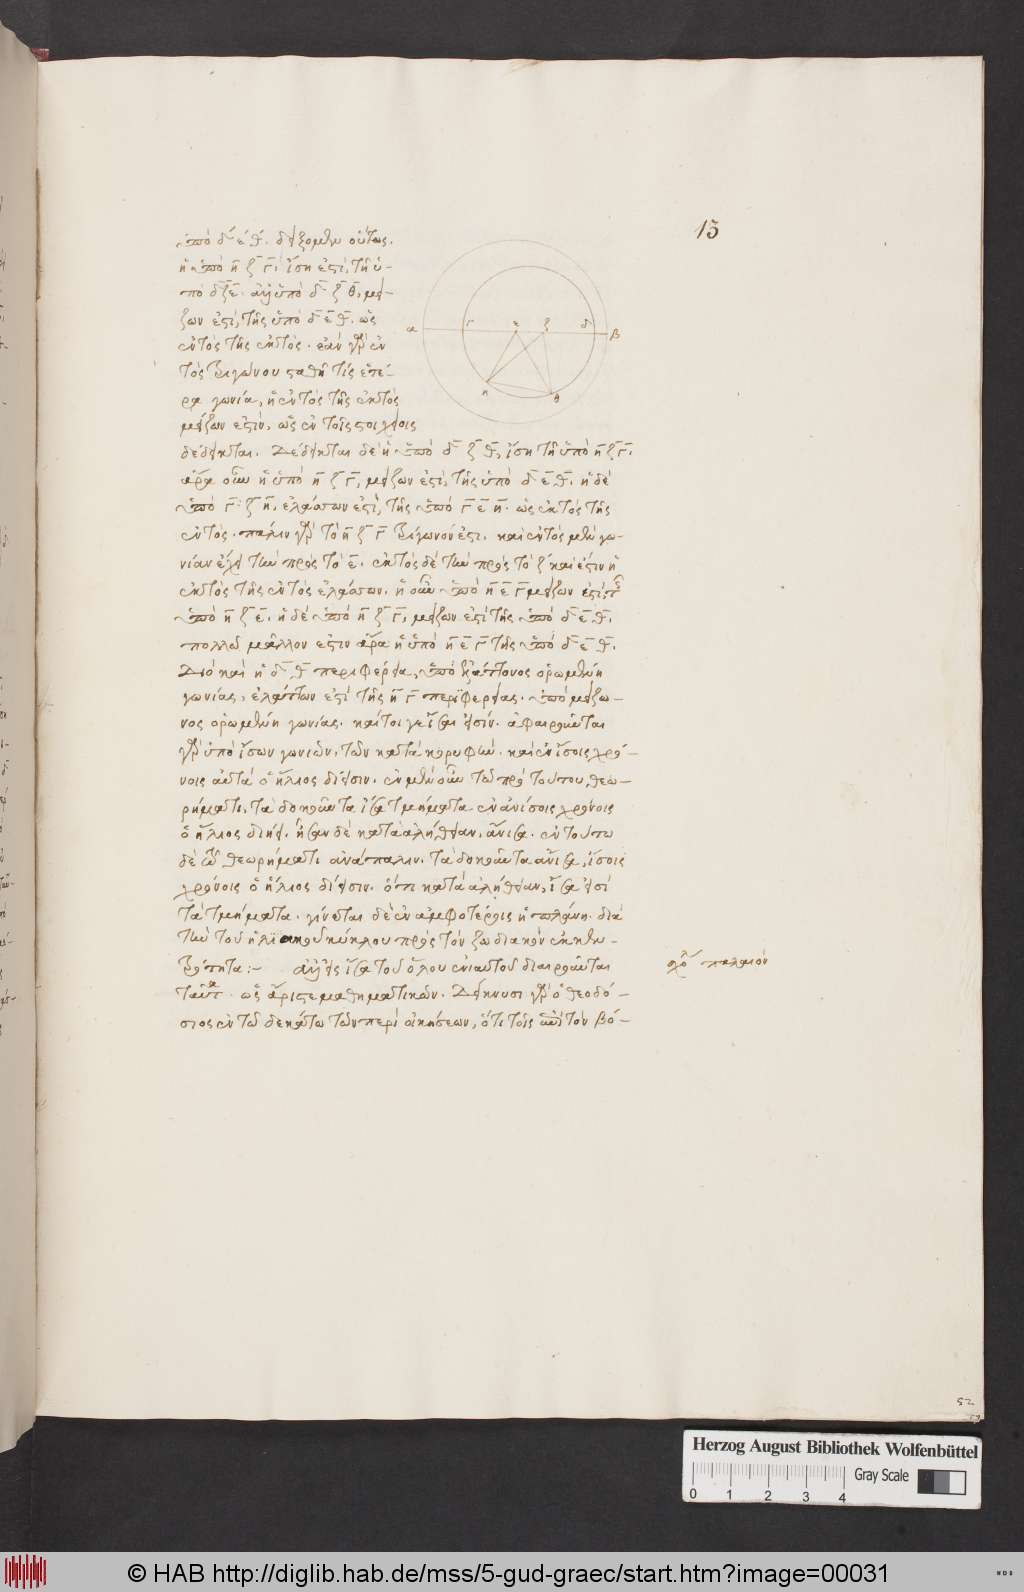 15
ὑπὸ δ ε θ. δείξομεν οὕτως.
ἡ ὑπὸ η ζ γ, ἴση ἐστὶ, τῇ ὑ-
πὸ δ ζ ε. ἀλλ' ἡ ὑπὸ δ ζ θ, μεί-
ζων ἐστὶ, τῆς ὑπὸ δ ε θ. ὡς
ἐντὸς τῆς ἐκτὸς. ἐὰν γὰρ ἐν
τὸς τριγώνου σταθῇ τίς ἑτέ-
ρα γωνία, ἡ ἐντὸς τῆς ἐκτὸς
μείζων ἐστὶν, ὡς ἐν τοῖς στοιχείοις
δέδεικται. Δέδεικται δὲ ἡ ὑπὸ δ ζ θ, ἴση τῇ ὑπὸ η ζ γ.
ἄρα οὖν ἡ ὑπὸ η ζ γ, μείζων ἐστὶ, τῆς ὑπὸ δ ε θ. ἡ δὲ
ὑπὸ γ ζ η, ἐλάττων ἐστὶ, τῆς ὑπὸ γ ε η. ὡς ἐκτὸς τῆς
ἐντὸς. πάλιν γὰρ τὸ η ζ γ τρίγωνόν ἐστι. καὶ ἐντὸς μὲν γω-
νίαν ἔχει τὴν πρὸς τὸ ε. ἐκτὸς δὲ τὴν πρὸς τὸ ζ καὶ ἔστιν ἡ
ἐκτὸς τῆς ἐντὸς ἐλάττων. ἡ οὖν ὑπὸ η ε γ μείζων ἐστὶ τῆς
ὑπὸ η ζ ε. ἡ δὲ ὑπὸ η ζ γ, μείζων ἐστὶ τῆς ὑπὸ δ ε θ.
πολλῷ μᾶλλον ἐστιν ἄρα ἡ ὑπὸ η ε γ τῆς ὑπὸ δ ε θ.
Διὸ καὶ ἡ δ θ περιφέρεια, ὑπὸ ἐλάττονος ὁρωμένη
γωνίας, ἐλάττων ἐστὶ τῆς η γ περιφερείας. ὑπὸ μείζο-
νος ὁρωμένη γωνίας. καίτοι γε ἴσαι εἰσίν. ἀφαιροῦνται
γὰρ ὑπὸ ἴσων γωνιῶν, τῶν κατὰ κορυφὴν. καὶ ἐν ἴσοις χρό-
νοις αὐτὰ ὁ ἥλιος δίεισιν. ἐν μὲν οὖν τῷ πρὸ τούτου θεω-
ρήματι, τὰ δοκοῦντα ἴσα τμήματα ἐν ἀνίσοις χρόνοις
ὁ ἥλιος διήει. ἦσαν δὲ κατὰ ἀλήθειαν, ἄνισα. ἐν τούτῳ
δὲ τῷ θεωρήματι ἀνάπαλιν. τὰ δοκοῦντα ἄνισα, ἴσοις
χρόνοις ὁ ἥλιος δίεισιν. ὅτι κατὰ ἀλήθειαν, ἴσα εἰσὶ
τὰ τμήματα. γίνεται δὲ ἐν ἀμφοτέροις ἡ πλάνη. διὰ
τὴν τοῦ ἡλιακοῦ κύκλου πρὸς τὸν ζωδιακὸν ἐκκεν-
τρότητα :- ἀλλ' εἰς ἴσα τοῦ ὅλου ἐνιαυτοῦ διαιροῦνται
ταῦτα. ὡς ἄριστε μαθηματικῶν. Δείκνυσι γὰρ ὁ θεοδό-
σιος ἐν τῷ δεκάτῳ τῶν περὶ οἰκήσεων, ὅτι τοῖς ὑπὸ τὸν βό-
α γ ε ζ δ β
η θ
σχό παλαιόν
52
Herzog August Bibliothek Wolfenbüttel
Gray Scale
0 1 2 3 4
© HAB http://diglib.hab.de/mss/5-gud-graec/start.htm?image=00031